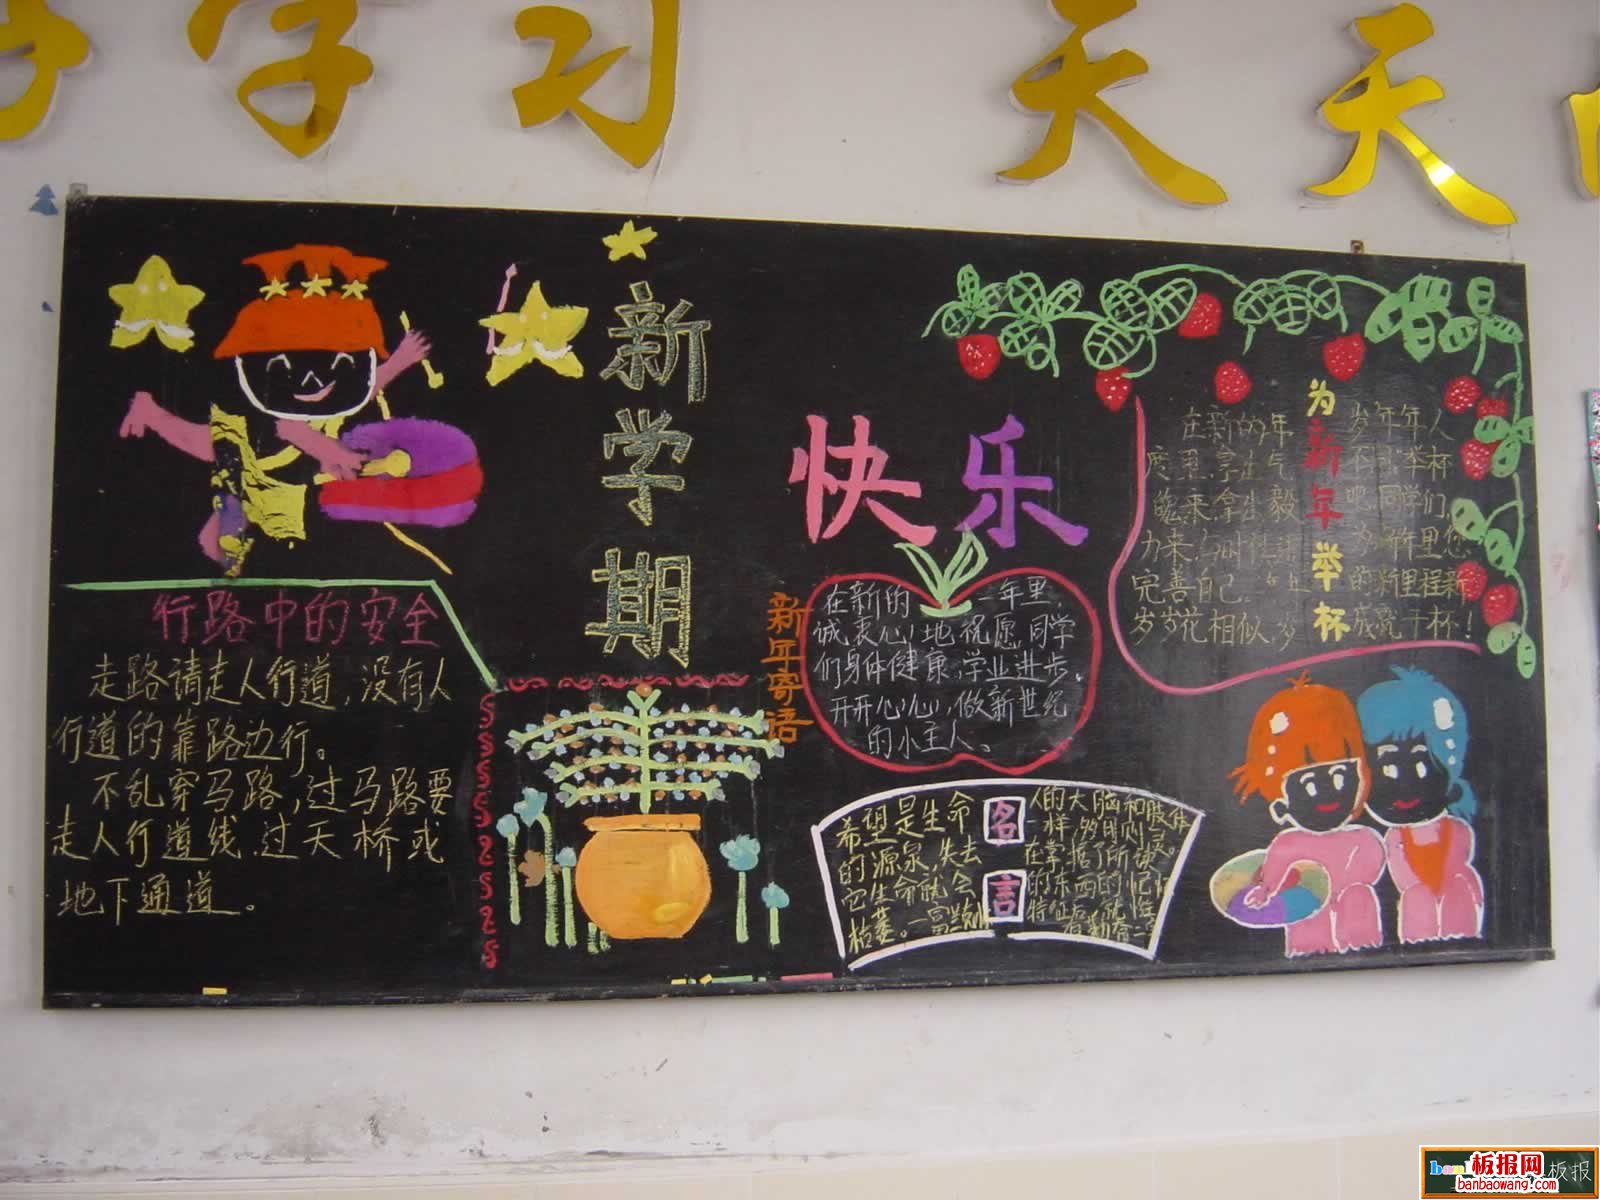 学习 天天
新学期
快乐
行路中的安全
走路请走人行道，没有人
行道的靠路边行。
不乱穿马路，过马路要
走人行道线 过天桥或
地下通道。
新年寄语
在新的一年里，
诚衷心地祝愿同学
们身体健康，学业进步。
开开心心，做新世纪
的小主人。
名言
希望是生命
的源泉，失去
它生命就会
枯萎。一富兰
人的大脑和肢体
一样
为新年举杯
在新的年
度里，拿出气
来，拿出毅
力来
完善自己
岁岁花相似，岁
岁年年人
不同 举杯
吧，同学们，
为
的新里程新
成就干杯！
板报网
banbaowang.com
板报